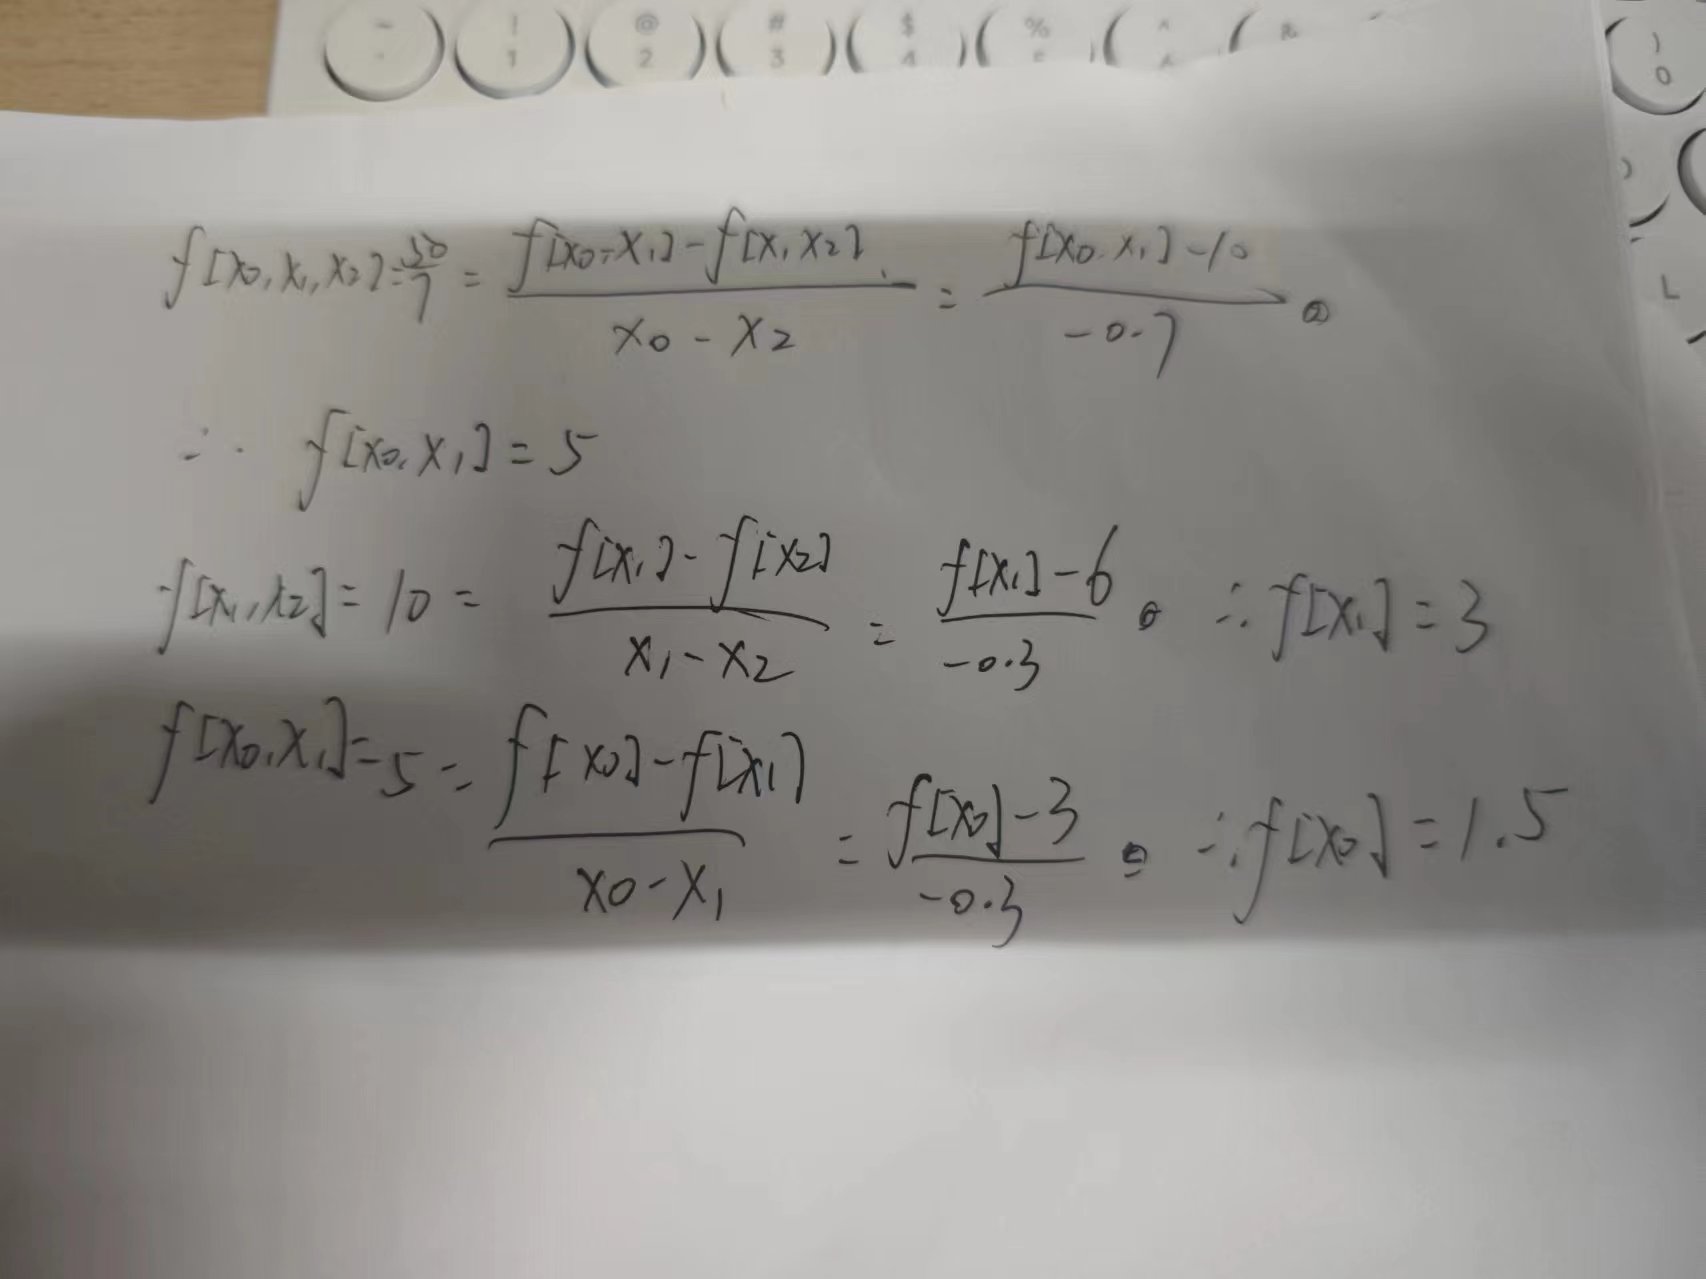 - ! @ # $ % ^ & )
- 1 2 3 4 0
L
f[x0, x1, x2] = 50/7 = (f[x0-x1] - f[x1 x2]) / (x0 - x2) = (f[x0. x1] - 10) / (-0.7)
∴ f[x0, x1] = 5
f[x1, x2] = 10 = (f[x1] - f[x2]) / (x1 - x2) = (f[x1] - 6) / (-0.3) ∴ f[x1] = 3
f[x0, x1] = 5 = (f[x0] - f[x1]) / (x0 - x1) = (f[x0] - 3) / (-0.3) ∴ f[x0] = 1.5